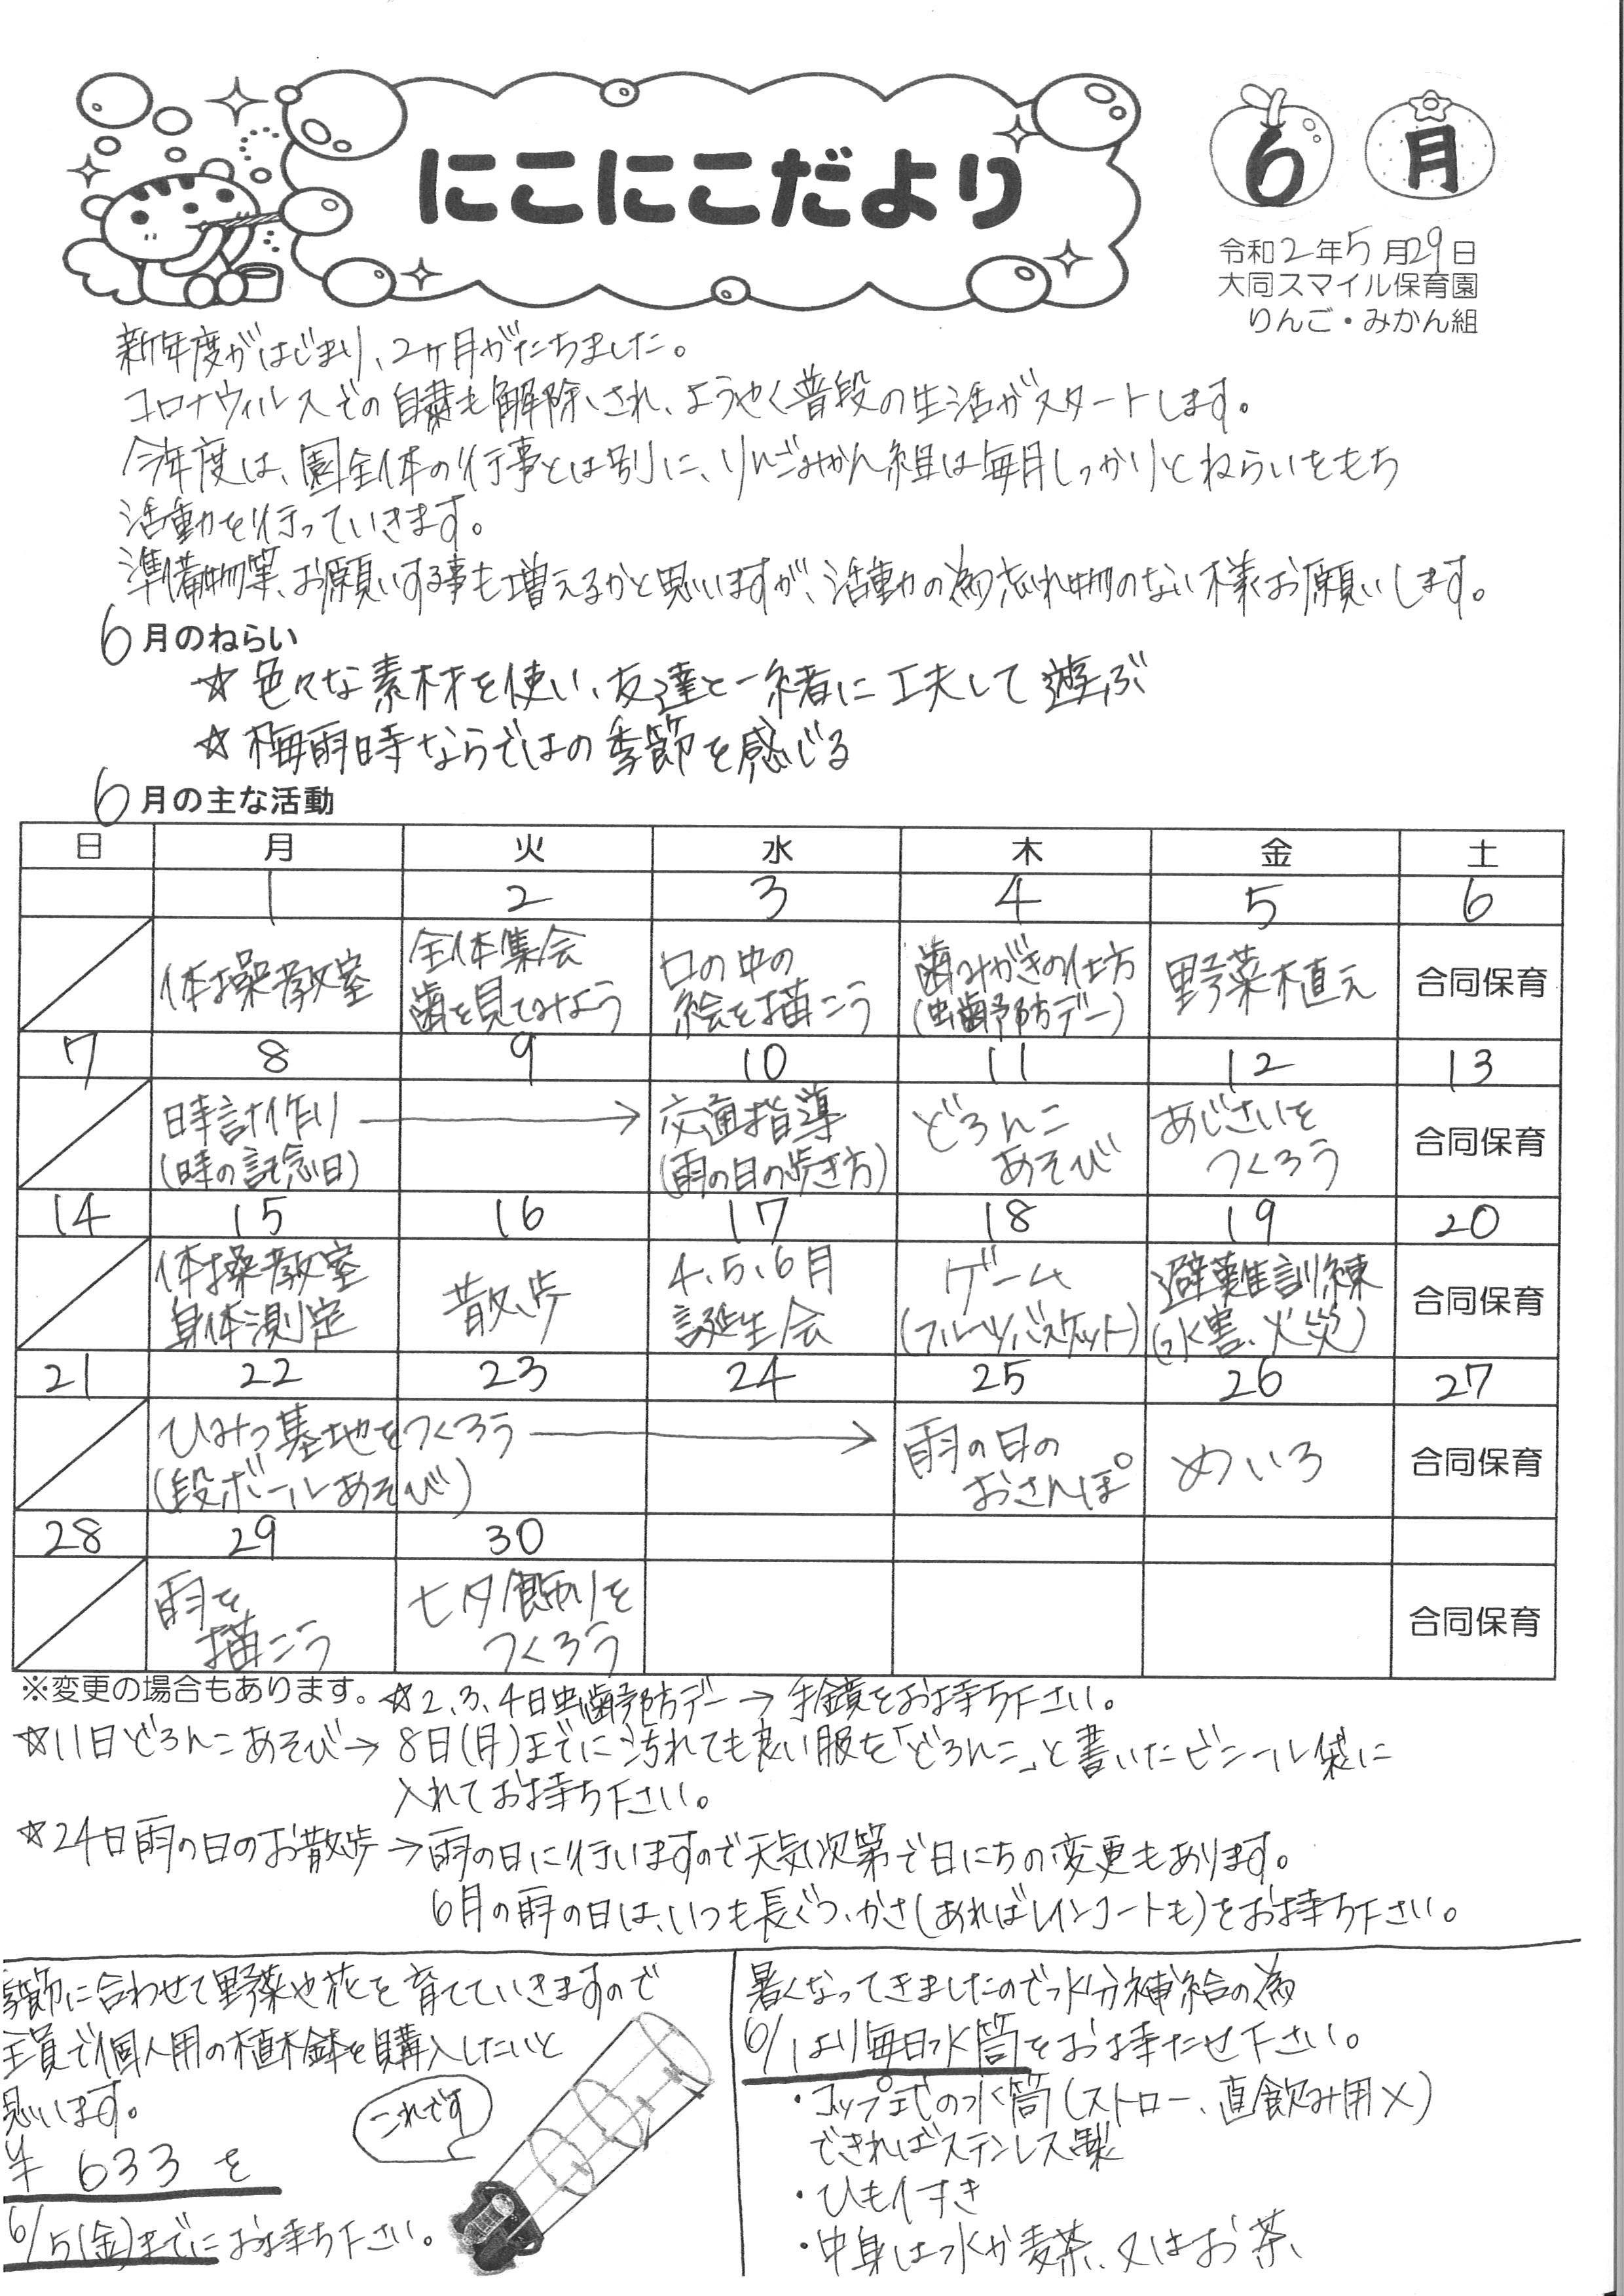 にこにこだより
6月
令和2年5月29日
大同スマイル保育園
りんご・みかん組
新年度がはじまり、2ヶ月がたちました。
コロナウィルスでの自粛も解除され、ようやく普段の生活がスタートします。
今年度は、園全体の行事とは別に、りんごみかん組は毎月しっかりとねらいをもち
活動を行っていきます。
準備物等、お願いする事も増えるかと思いますが、活動の為忘れ物のない様お願いします。
6月のねらい
☆色々な素材を使い、友達と一緒に工夫して遊ぶ
☆梅雨時ならではの季節を感じる
6月の主な活動
日 月 火 水 木 金 土
1 2 3 4 5 6
体操教室 全体集会 歯を見てみよう 口の中の絵を描こう 歯みがきの仕方(虫歯予防デー) 野菜植え 合同保育
7 8 9 10 11 12 13
時計作り(時の記念日) → 交通指導(雨の日の歩き方) どろんこあそび あじさいをつくろう 合同保育
14 15 16 17 18 19 20
体操教室 身体測定 散歩 4、5、6月誕生会 ゲーム(フルーツバスケット) 避難訓練(水害、火災) 合同保育
21 22 23 24 25 26 27
ひみつ基地をつくろう(段ボールあそび) → 雨の日のおさんぽ めいろ 合同保育
28 29 30
雨を描こう 七夕飾りをつくろう 合同保育
※変更の場合もあります。☆2、3、4日虫歯予防デー→手鏡をお持ち下さい。
☆11日どろんこあそび→8日(月)までに汚れても良い服を「どろんこ」と書いたビニール袋に
入れてお持ち下さい。
☆24日雨の日のお散歩→雨の日に行いますので天気次第で日にちの変更もあります。
6月の雨の日は、いつも長ぐつ、かさ(あればレインコートも)をお持ち下さい。
季節に合わせて野菜や花を育てていきますので
全員で個人用の植木鉢を購入したいと
思います。
¥633を
6/5(金)までにお持ち下さい。
これです
暑くなってきましたので水分補給の為
6/1より毎日水筒をお持たせ下さい。
・コップ式の水筒(ストロー、直飲み用×)
できればステンレス製
・ひも付き
・中身は水か麦茶、又はお茶